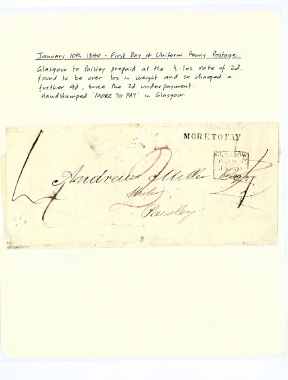 January 10th 1840 - First Day of Uniform Penny Postage.
Glasgow to Paisley prepaid at the ½-1oz rate of 2d.
found to be over 1oz in weight and so charged a
further 4d, twice the 2d underpayment.
Handstamped 'MORE TO PAY' in Glasgow.
MORE TO PAY
GLASGOW
4
2
Andrew J Miller
Paisley